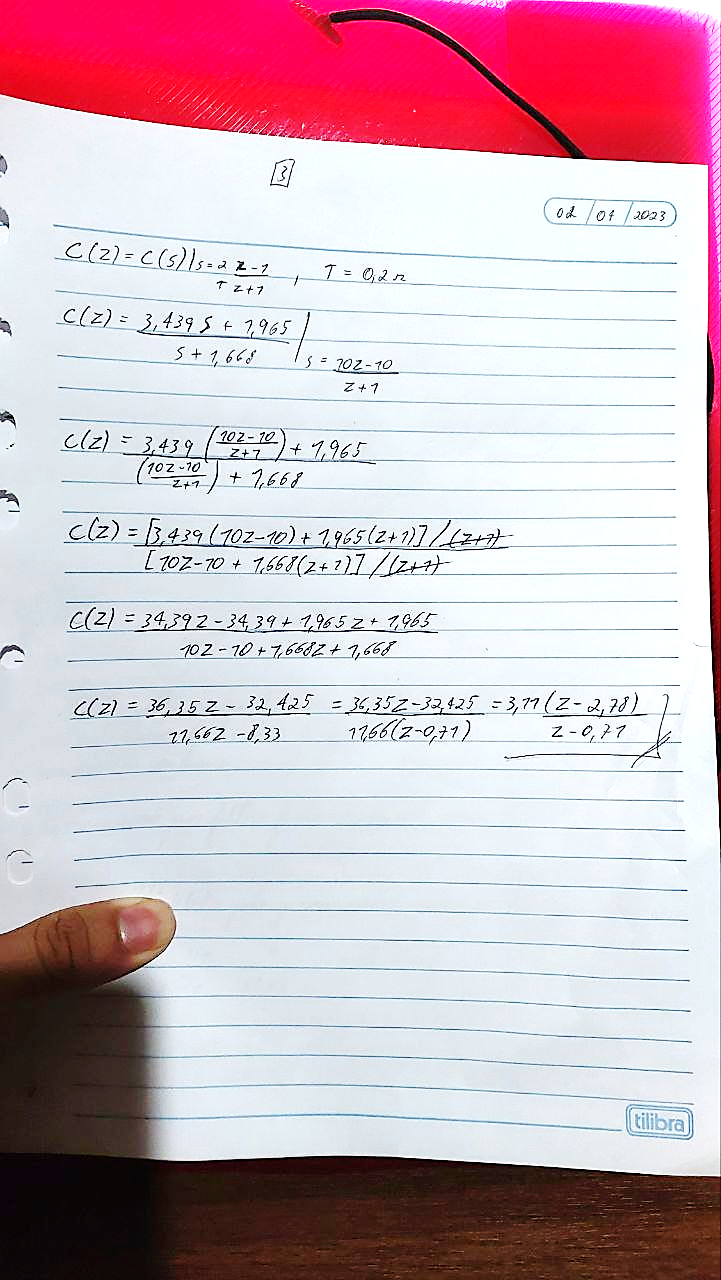 3
02/01/2023
C(z) = C(s)|s = 2/T z-1/z+1, T = 0,2s
C(z) = 3,439s + 1,965 / s + 1,668 | s = 10z-10 / z+1
C(z) = 3,439 (10z-10 / z+1) + 1,965 / (10z-10 / z+1) + 1,668
C(z) = [3,439(10z-10) + 1,965(z+1)]/(z+1) / [10z-10 + 1,668(z+1)]/(z+1)
C(z) = 34,39z - 34,39 + 1,965z + 1,965 / 10z - 10 + 1,668z + 1,668
C(z) = 36,35z - 32,425 / 11,66z - 8,33 = 36,35z - 32,425 / 11,66(z-0,71) = 3,11 (z - 2,78) / z - 0,71
tilibra